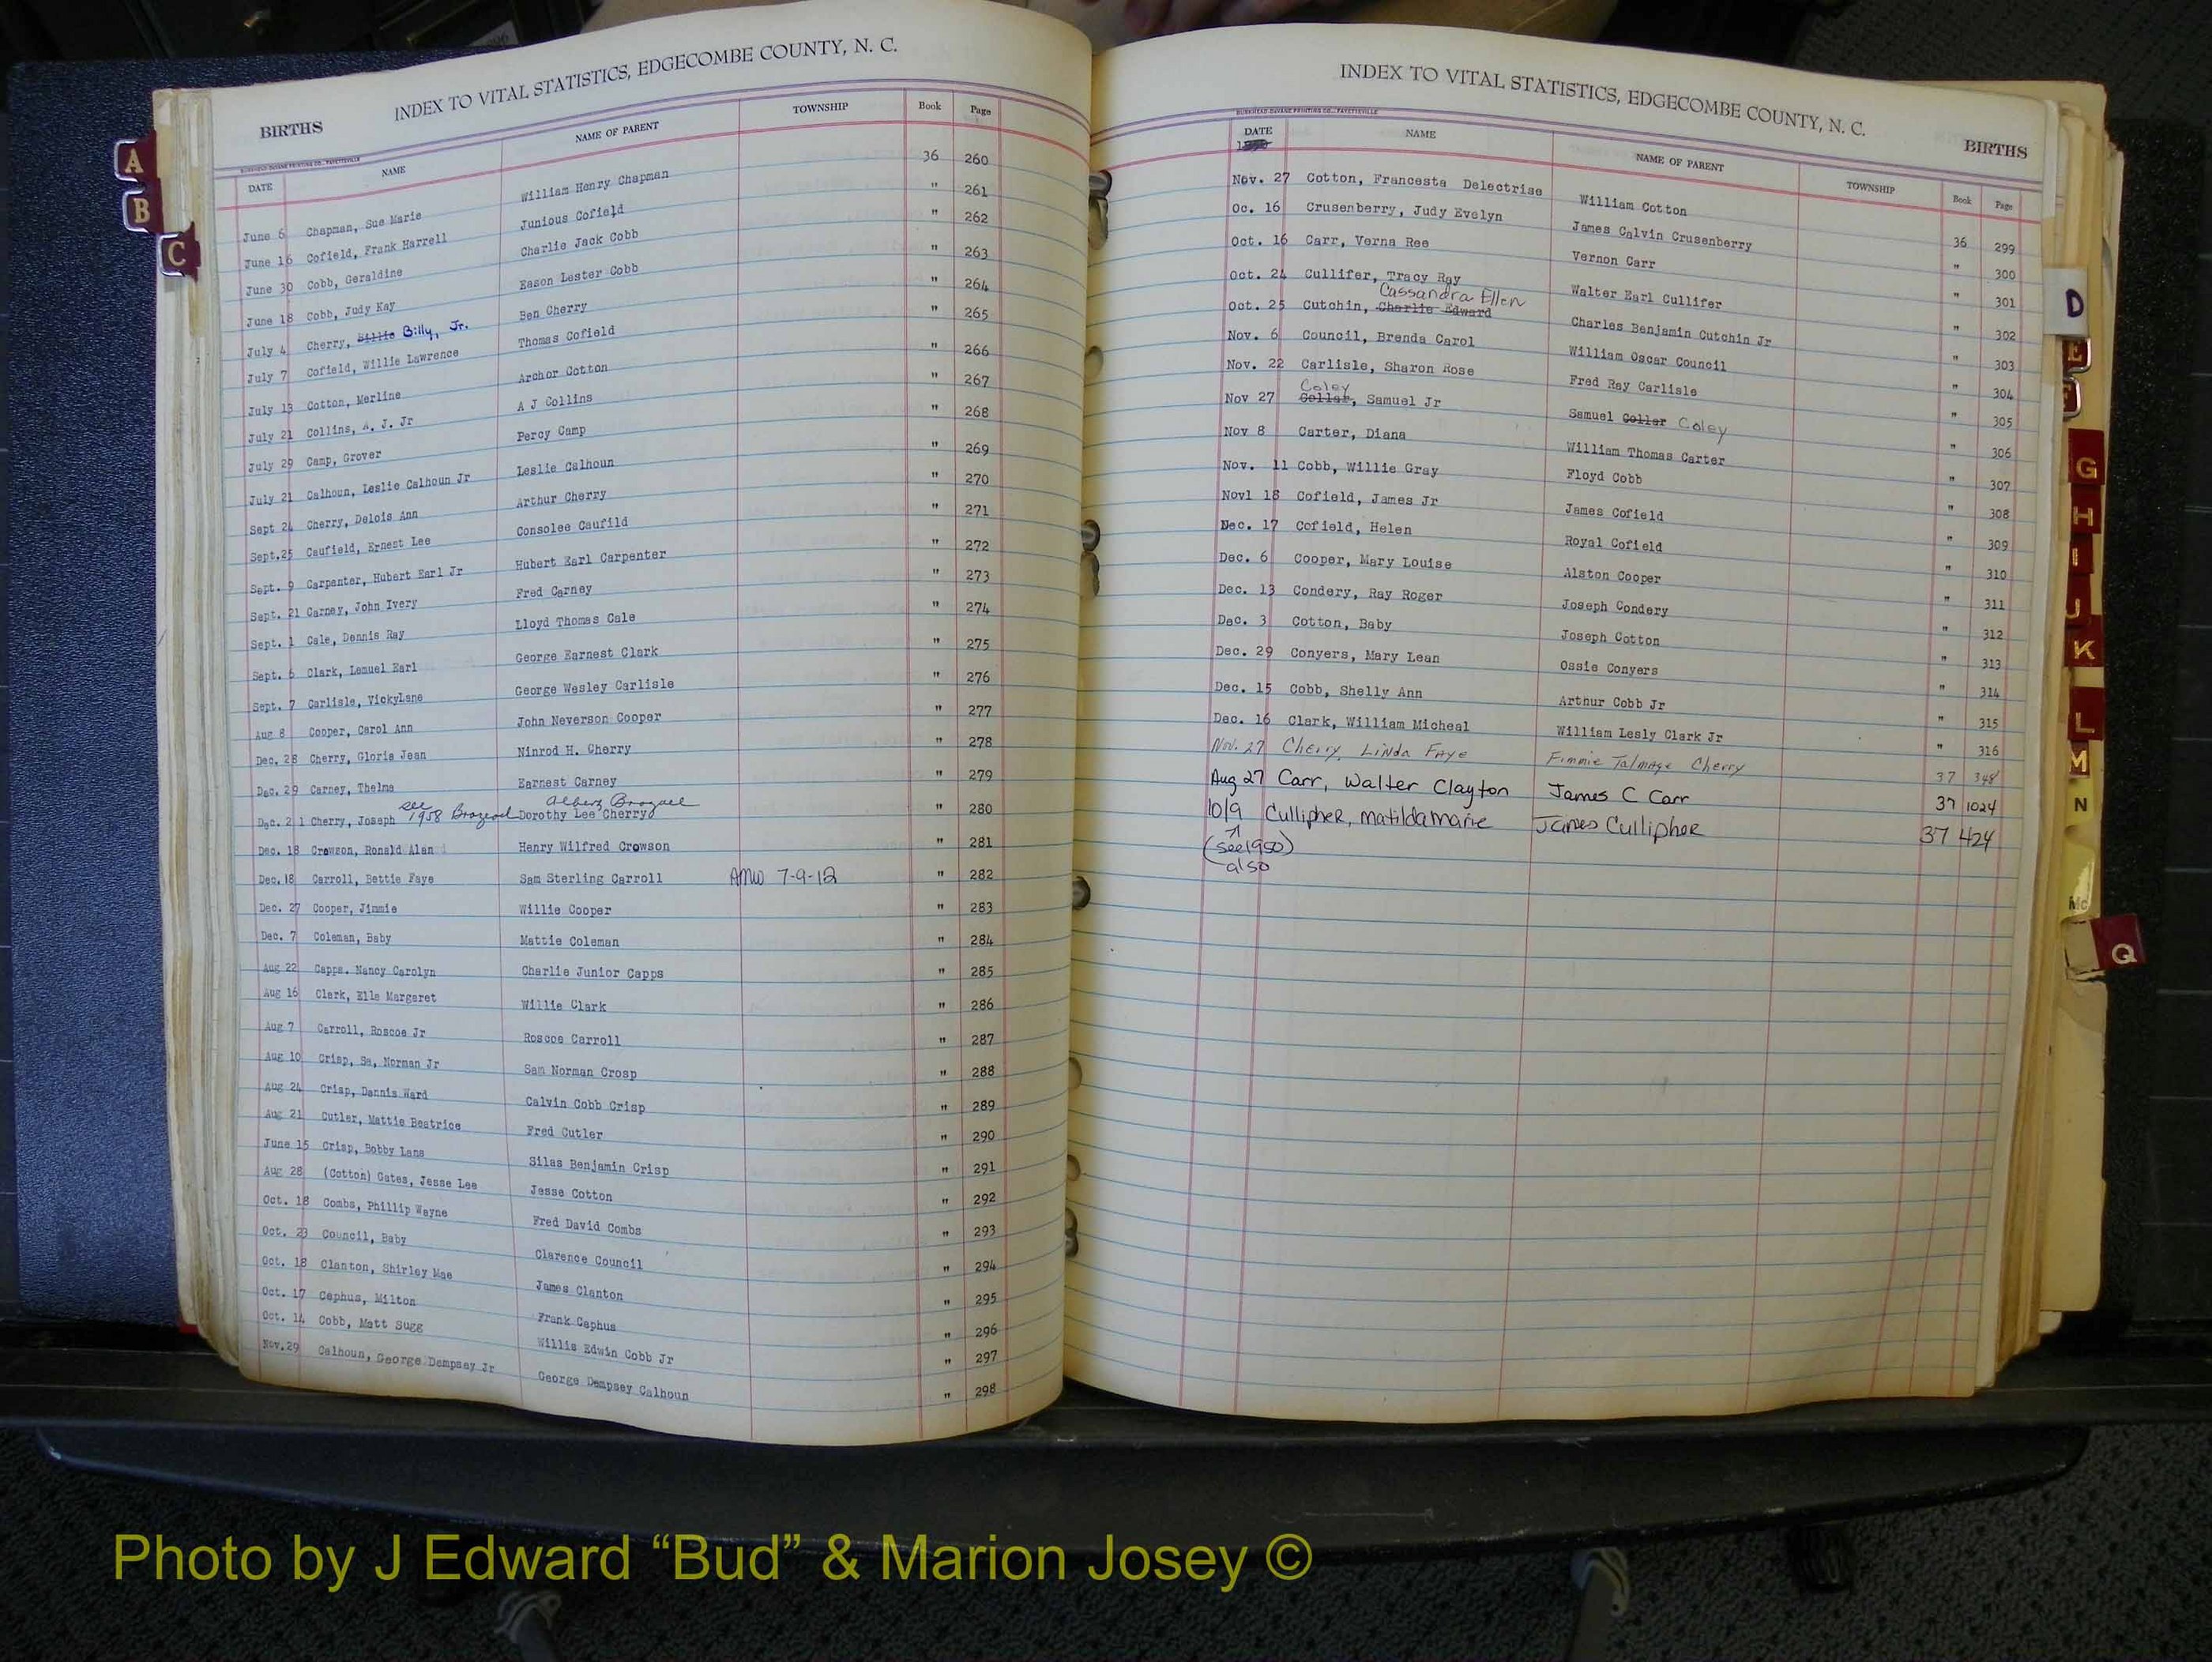 BIRTHS INDEX TO VITAL STATISTICS, EDGECOMBE COUNTY, N. C.
BURKHEAD-DEVANE PRINTING CO., FAYETTEVILLE
DATE NAME NAME OF PARENT TOWNSHIP Book Page
June 6 Chapman, Sue Marie William Henry Chapman 36 260
June 16 Cofield, Frank Harrell Junious Cofield " 261
June 30 Cobb, Geraldine Charlie Jack Cobb " 262
June 18 Cobb, Judy Kay Eason Lester Cobb " 263
July 4 Cherry, Billie Billy, Jr. Ben Cherry " 264
July 7 Cofield, Willie Lawrence Thomas Cofield " 265
July 13 Cotton, Merline Archor Cotton " 266
July 21 Collins, A. J. Jr A J Collins " 267
July 29 Camp, Grover Percy Camp " 268
July 21 Calhoun, Leslie Calhoun Jr Leslie Calhoun " 269
Sept 24 Cherry, Delois Ann Arthur Cherry " 270
Sept.25 Caufield, Ernest Lee Consolee Caufild " 271
Sept. 9 Carpenter, Hubert Earl Jr Hubert Earl Carpenter " 272
Sept. 21 Carney, John Ivery Fred Carney " 273
Sept. 1 Cale, Dennis Ray Lloyd Thomas Cale " 274
Sept. 6 Clark, Lemuel Earl George Earnest Clark " 275
Sept. 7 Carlisle, VickyLane George Wesley Carlisle " 276
Aug 8 Cooper, Carol Ann John Neverson Cooper " 277
Dec. 28 Cherry, Gloria Jean Ninrod H. Cherry " 278
Dec. 29 Carney, Thelma Earnest Carney " 279
Dec. 21 Cherry, Joseph see 1958 Dorothy Lee Cherry " 280
Dec. 18 Crowson, Ronald Alan Henry Wilfred Crowson " 281
Dec. 18 Carroll, Bettie Faye Sam Sterling Carroll AMW 7-9-12 " 282
Dec. 27 Cooper, Jimmie Willie Cooper " 283
Dec. 7 Coleman, Baby Mattie Coleman " 284
Aug 22 Capps. Nancy Carolyn Charlie Junior Capps " 285
Aug 16 Clark, Ella Margaret Willie Clark " 286
Aug 7 Carroll, Roscoe Jr Roscoe Carroll " 287
Aug 10 Crisp, Sa, Norman Jr Sam Norman Crosp " 288
Aug 24 Crisp, Dannis Ward Calvin Cobb Crisp " 289
Aug 21 Cutler, Mattie Beatrice Fred Cutler " 290
June 15 Crisp, Bobby Lane Silas Benjamin Crisp " 291
Aug 28 (Cotton) Gates, Jesse Lee Jesse Cotton " 292
Oct. 18 Combs, Phillip Wayne Fred David Combs " 293
Oct. 23 Council, Baby Clarence Council " 294
Oct. 18 Clanton, Shirley Mae James Clanton " 295
Oct. 17 Cephus, Milton Frank Cephus " 296
Oct. 14 Cobb, Matt Sugg Willis Edwin Cobb Jr " 297
Nov.29 Calhoun, George Dempsey Jr George Dempsey Calhoun " 298
INDEX TO VITAL STATISTICS, EDGECOMBE COUNTY, N. C. BIRTHS
BURKHEAD-DEVANE PRINTING CO., FAYETTEVILLE
DATE NAME NAME OF PARENT TOWNSHIP Book Page
Nov. 27 Cotton, Francesta Delectrise William Cotton 36 299
Oc. 16 Crusenberry, Judy Evelyn James Calvin Crusenberry " 300
Oct. 16 Carr, Verna Ree Vernon Carr " 301
Oct. 24 Cullifer, Tracy Ray Walter Earl Cullifer " 302
Cassandra Ellen
Oct. 25 Cutchin, Charlie Edward Charles Benjamin Cutchin Jr " 303
Nov. 6 Council, Brenda Carol William Oscar Council " 304
Nov. 22 Carlisle, Sharon Rose Fred Ray Carlisle " 305
Coley
Nov 27 Collar, Samuel Jr Samuel Collar Coley " 306
Nov 8 Carter, Diana William Thomas Carter " 307
Nov. 11 Cobb, Willie Gray Floyd Cobb " 308
Novl 18 Cofield, James Jr James Cofield " 309
Dec. 17 Cofield, Helen Royal Cofield " 310
Dec. 6 Cooper, Mary Louise Alston Cooper " 311
Dec. 13 Condery, Ray Roger Joseph Condery " 312
Dec. 3 Cotton, Baby Joseph Cotton " 313
Dec. 29 Conyers, Mary Lean Ossie Conyers " 314
Dec. 15 Cobb, Shelly Ann Arthur Cobb Jr " 315
Dec. 16 Clark, William Micheal William Lesly Clark Jr " 316
Nov. 27 Cherry, Linda Faye Fimmie Talmage Cherry 37 348
Aug 27 Carr, Walter Clayton James C Carr 37 1024
10/9 Cullipher, matilda marie James Cullipher 37 424
(see 1950)
also
A
B
C
D
E
F
G
H
I
J
K
L
M
N
Mc
Q
Photo by J Edward “Bud” & Marion Josey ©